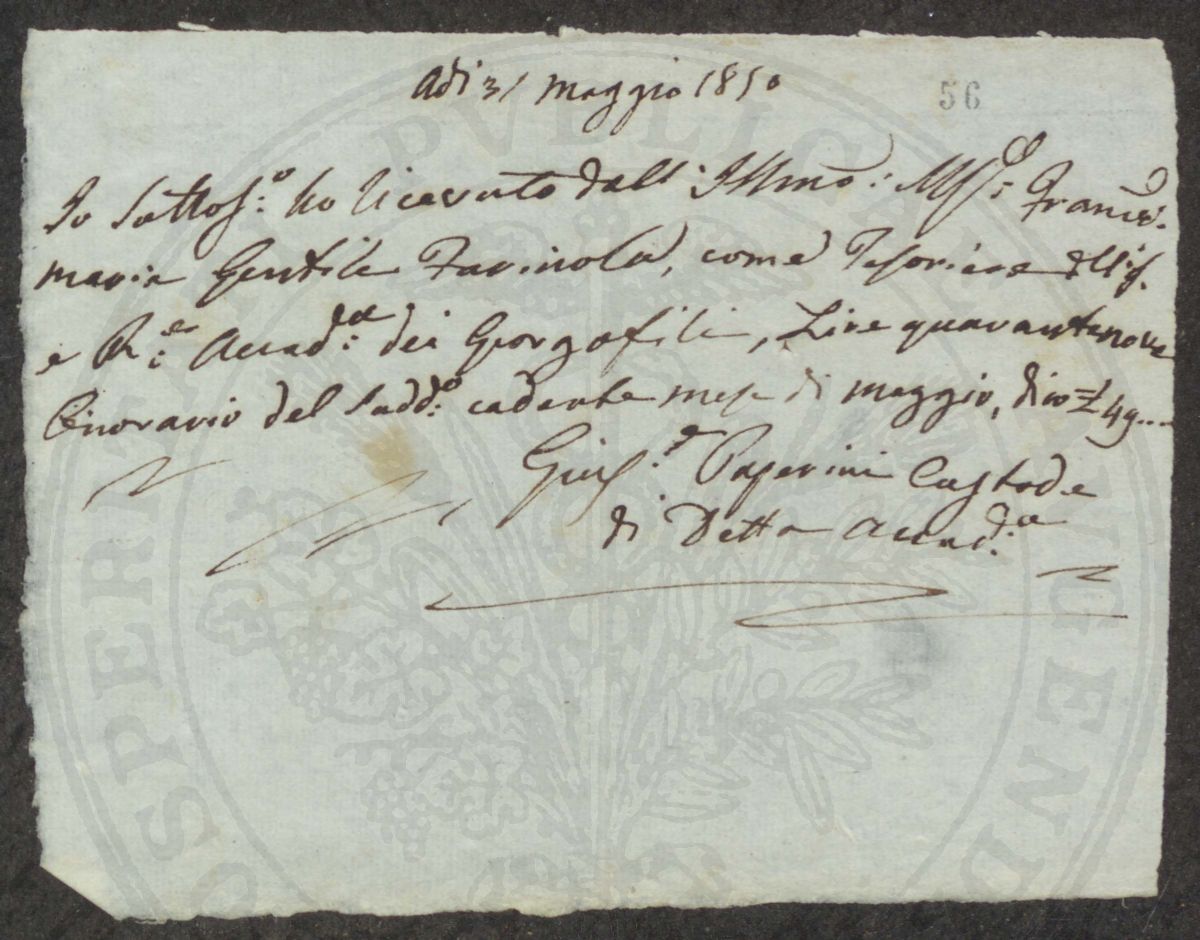 Adì 31 Maggio 1850
56
Io Sottos.º ho ricevuto dall' Illmo: March.e Frances.
maria Gentile Farinola, come Tesoriere dell' I.
e R.e Accad.a dei Georgofili, Lire quarantanove
Onorario del sudd.º cadente mese di Maggio, dico £ 49....
Gius.e Paperini Custode
di Detta Accad.a
PROSPERITATI PUBLICAE AUGENDAE